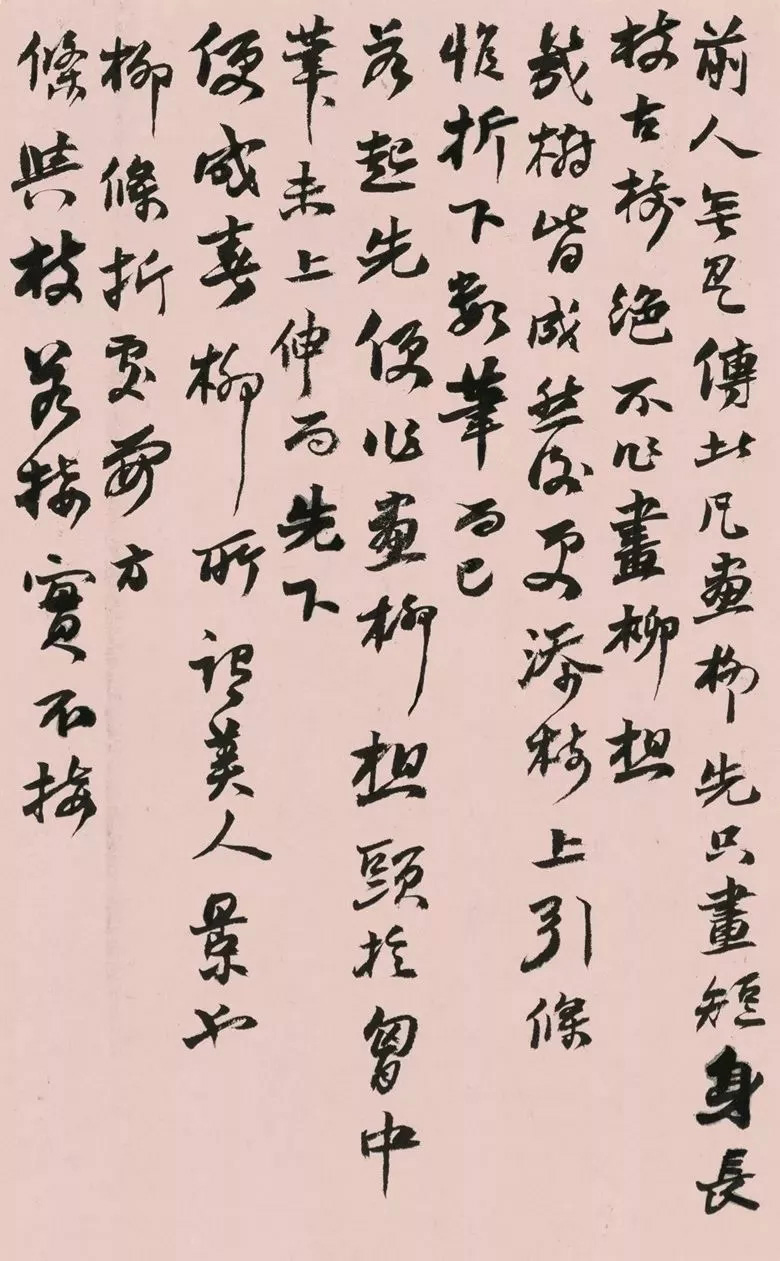 前人無傳此凡畫柳先只畫短身長
枝古樹絕不作畫柳想
幾樹皆成然後更添枝上引條
惟折下數筆而已
若起先便作畫柳想頭於胷中
筆未上伸而先下
便成春柳所謂美人景也
柳條折處要方
條與枝若接實不接